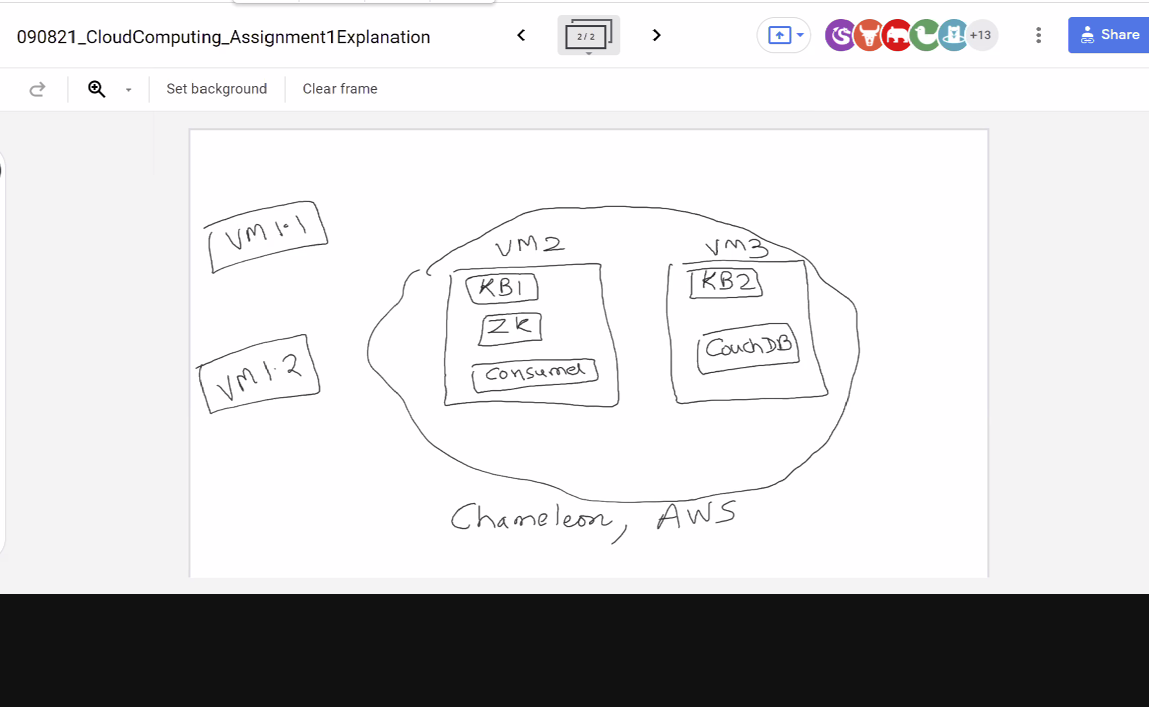 090821_CloudComputing_Assignment1Explanation
2 / 2
+13
Share
Set background
Clear frame
VM 1.1
VM2
VM3
KB1
KB2
ZK
CouchDB
Consumer
VM 1.2
Chameleon, AWS